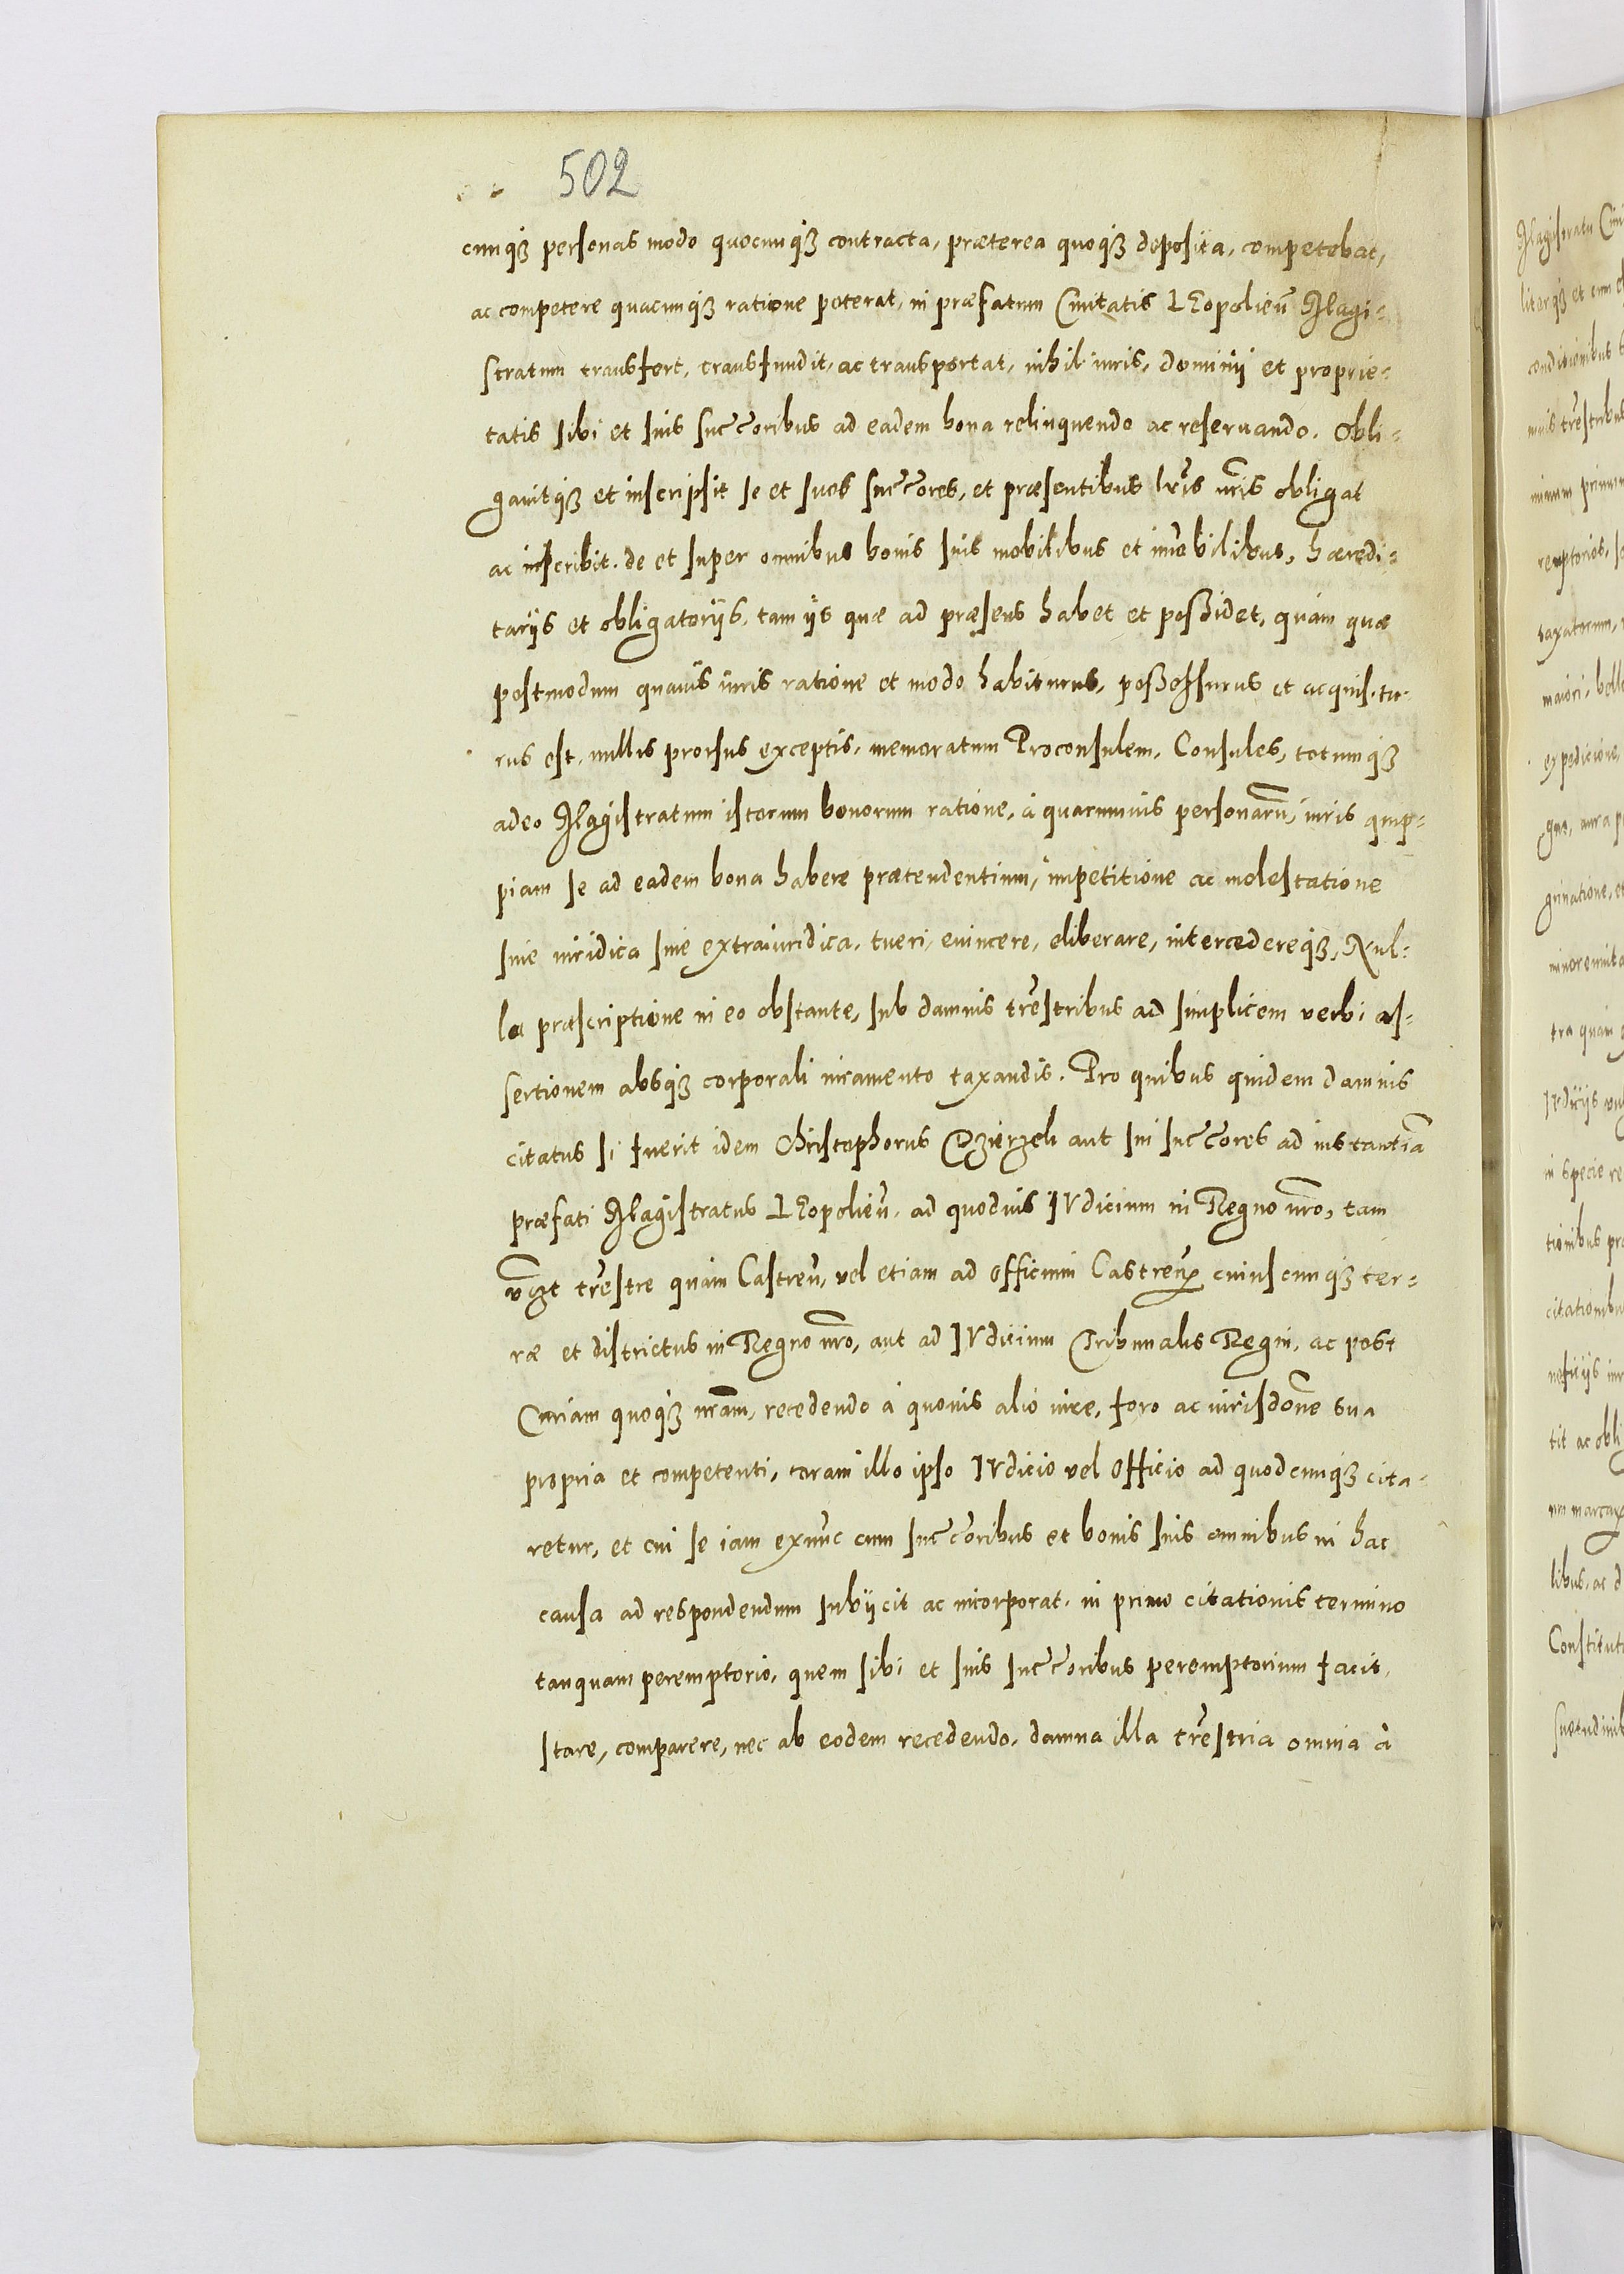 502
cunq₃ personas modo quocunq₃ contracta, præterea quoq₃ deposita, competebat,
ac competere quacunq₃ ratione poterat, in præfatum Ciuitatis LEopolien̄ Magi-
stratum transfert, transfundit, ac transportat, nihil iuris, dominij et proprie-
tatis sibi et suis succ̄oribus ad eadem bona relinquendo ac reseruando. Obli-
gauitq₃ et inscripsit se et suos succ̄ores, et præsentibus lr̄is nr̄is obligat
ac inscribit. de et super omnibus bonis suis mobilibus et im̄obilibus, hæredi-
tarijs et obligatorijs, tam ijs quæ ad præsens habet et possidet, quàm quæ
postmodum quauis iuris ratione et modo habiturus, possessurus et acquisitu-
rus est, nullis prorsus exceptis, memoratum Proconsulem, Consules, totumq₃
adeo Magistratum istorum bonorum ratione, à quarumuis personarū, iuris qmp-
piam se ad eadem bona habere prætendentium, impetitione ac molestatione
siue iuridica siue extraiuridica, tueri, euincere, eliberare, intercedereq₃, Nul-
la præscriptione in eo obstante, sub damnis tr̄estribus ad simplicem verbi as-
sertionem absq₃ corporali iuramento taxandis. Pro quibus quidem damnis
citatus si fuerit idem Christophorus Dzierzek aut sui succ̄ores ad instantiā
præfati Magistratus LEopolien̄. ad quoduis IVdicium in Regno nr̄o, tam
vz̄t tr̄estre quàm Castren̄, vel etiam ad Officium Castren̄ cuiuscunq₃ ter-
ræ et districtus in Regno nr̄o, aut ad IVdicium Tribunalis Regni, ac post
Curiam quoq₃ nr̄am, recedendo à quouis alio iure, foro ac iurisdōne sua
propria et competenti, coram illo ipso IVdicio vel Officio ad quodcunq₃ cita-
retur, et cui se iam exnūc cum succ̄oribus et bonis suis omnibus in hac
causa ad respondendum subijcit ac incorporat. in primo citationis termino
tanquam peremptorio, quem sibi et suis succ̄oribus peremptorium facit,
stare, comparere, nec ab eodem recedendo, damna illa tr̄estria omnia à